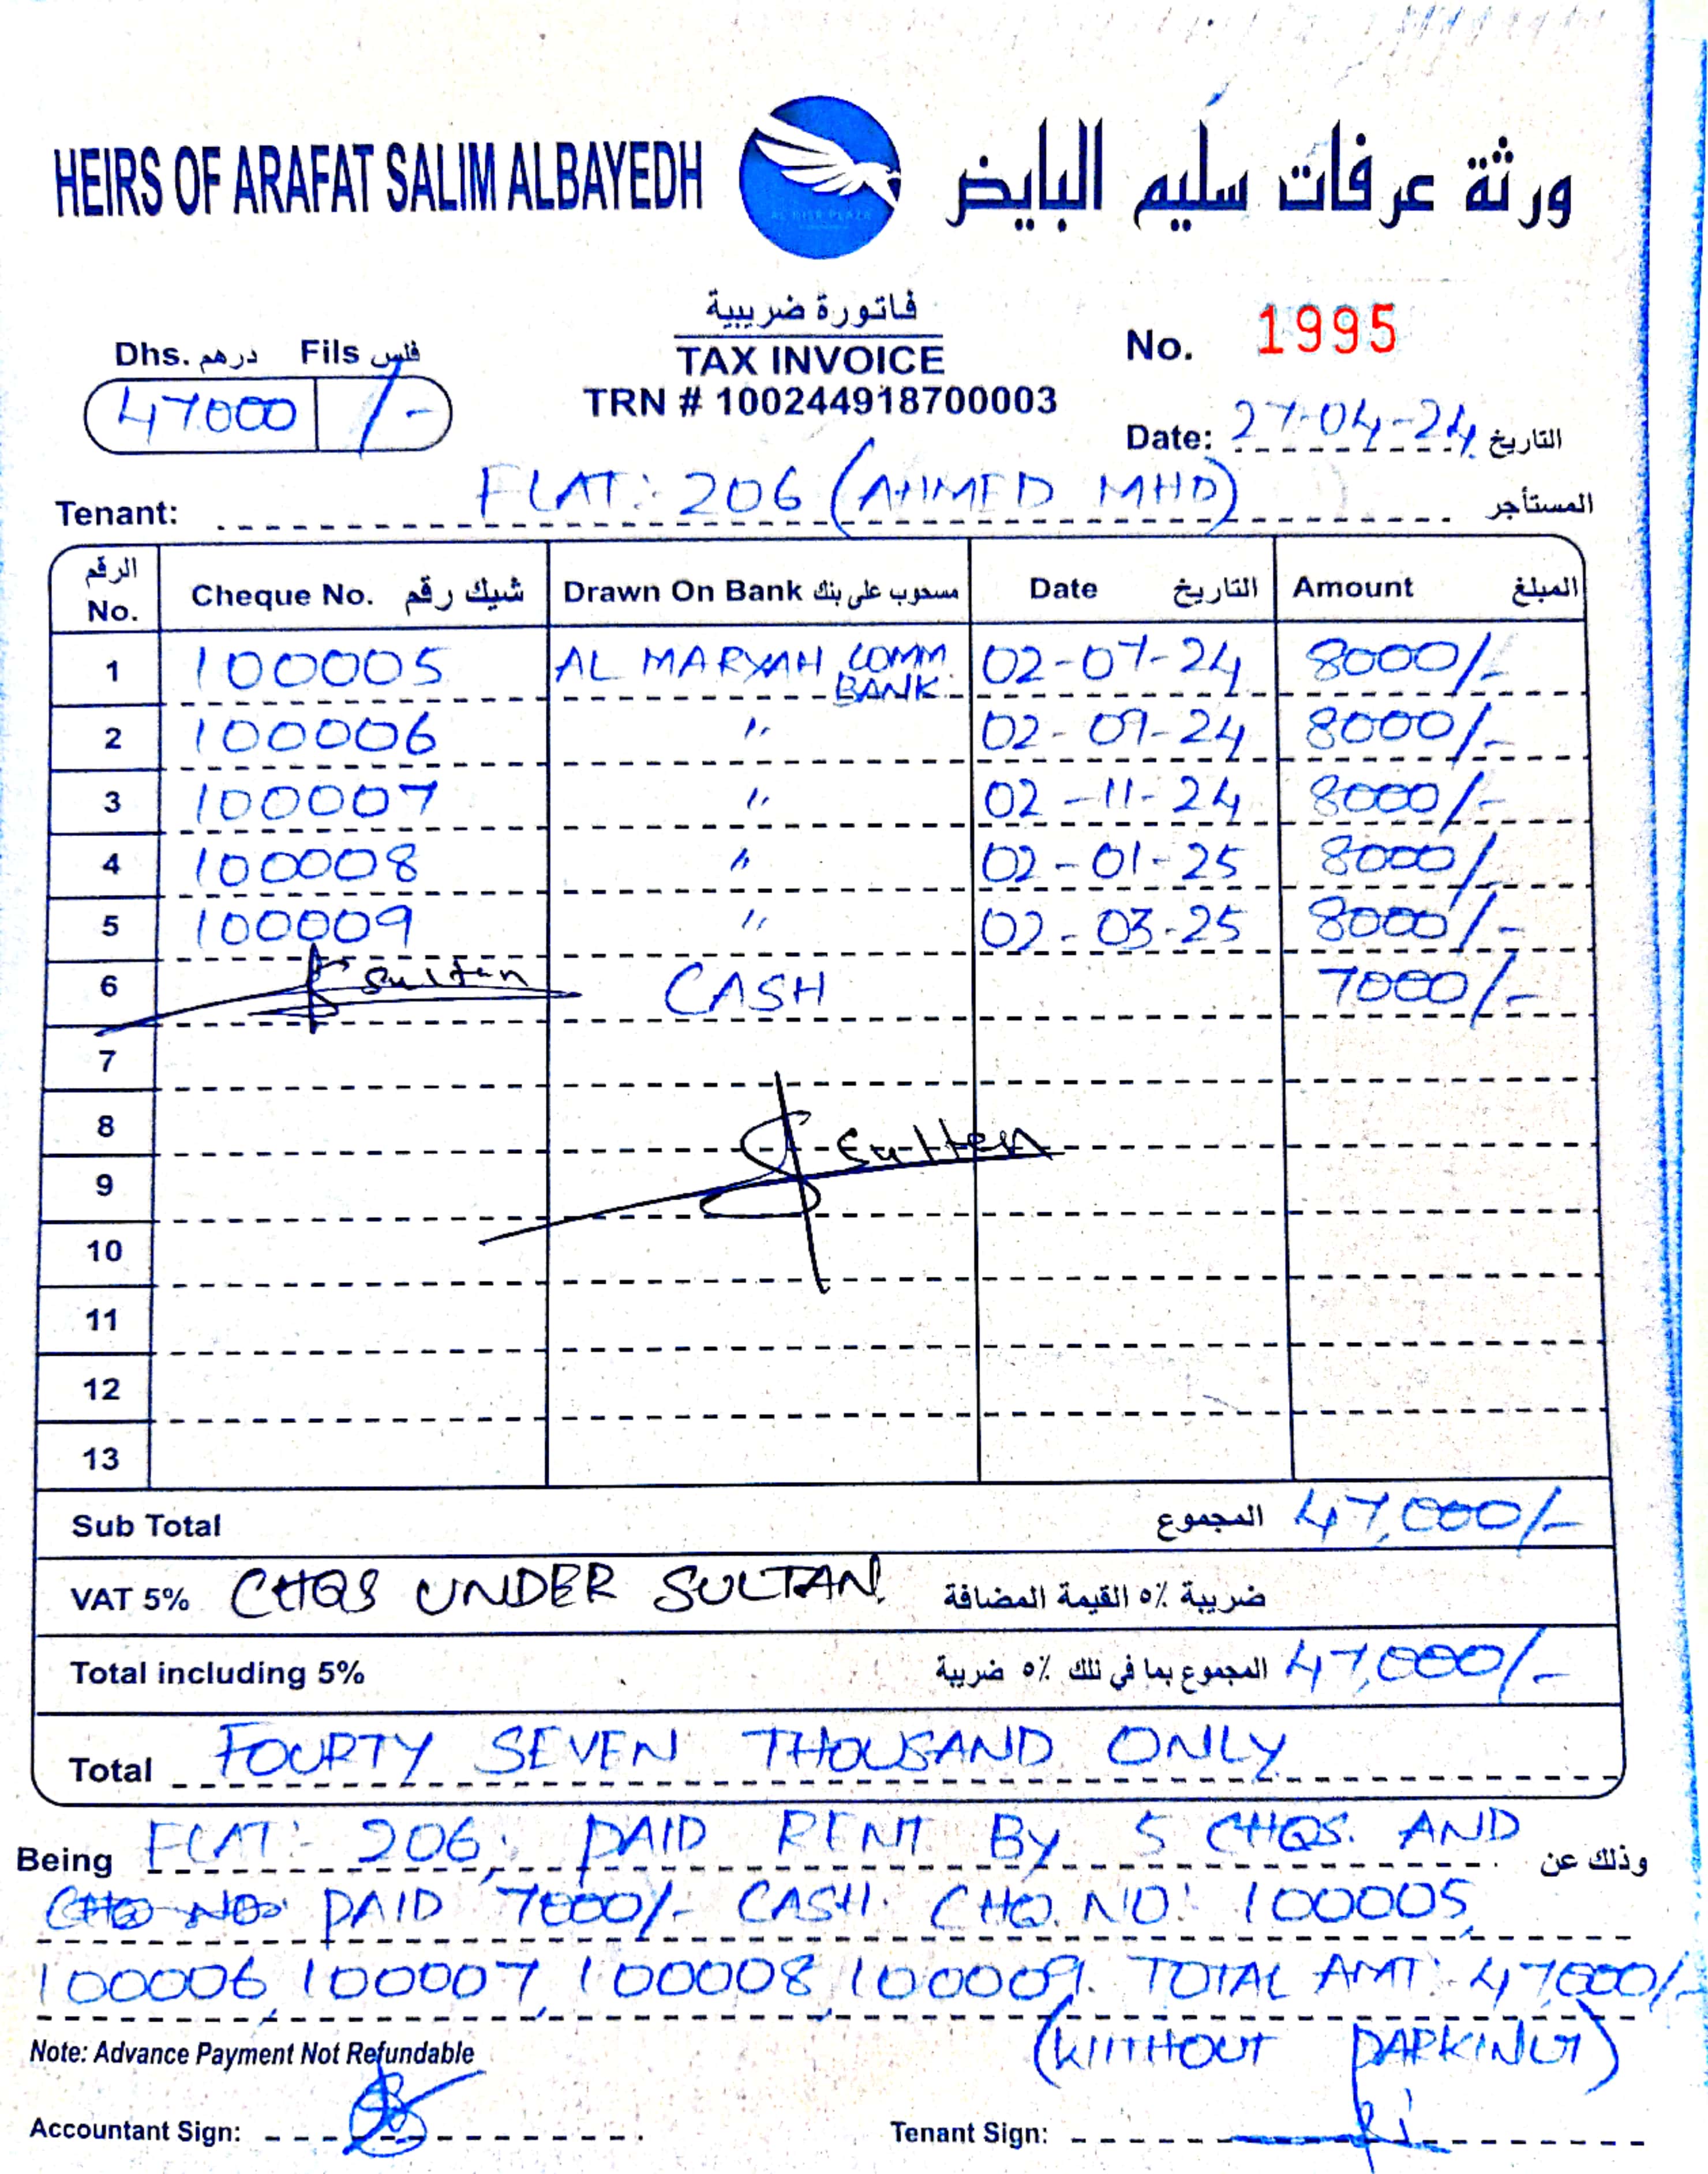 HEIRS OF ARAFAT SALIM ALBAYEDH ورثة عرفات سليم البايض
AL NISR PLAZA
فاتورة ضريبية
TAX INVOICE
TRN # 100244918700003
Dhs. درهم Fils فلس
47000 /-
No. 1995
Date: 27-04-24 التاريخ
Tenant: FLAT: 206 (AHMED MHD) المستأجر
الرقم No. Cheque No. شيك رقم Drawn On Bank مسحوب على بنك Date التاريخ Amount المبلغ
1 100005 AL MARYAH COMM BANK 02-07-24 8000/-
2 100006 " 02-09-24 8000/-
3 100007 " 02-11-24 8000/-
4 100008 " 02-01-25 8000/-
5 100009 " 02-03-25 8000/-
6 Sultan CASH 7000/-
7
8
Sultan
9
10
11
12
13
Sub Total المجموع 47,000/-
VAT 5% CHQS UNDER SULTAN. ضريبة ٥٪ القيمة المضافة
Total including 5% المجموع بما في تلك ٥٪ ضريبة 47,000/-
Total FOURTY SEVEN THOUSAND ONLY
Being FLAT:- 206, PAID RENT BY 5 CHQS. AND وذلك عن
CHQ NO: PAID 7000/- CASH. CHQ. NO: 100005,
100006, 100007, 100008, 100009. TOTAL AMT: 47,000/-
(WITHOUT PARKING)
Note: Advance Payment Not Refundable
Accountant Sign:
Tenant Sign: